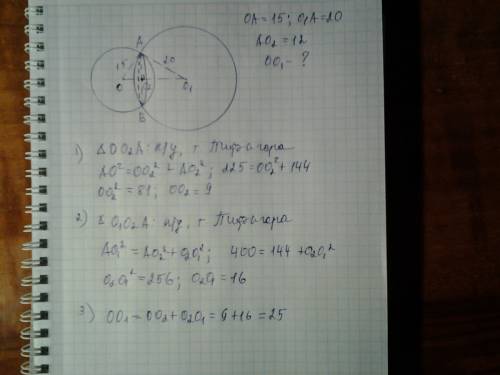 OA=15; O₁A=20
AO₂=12
OO₁ - ?
A
15
20
O
O₁
B
1) ΔOO₂A: п/у, т. Пифагора
AO²=OO₂²+AO₂²; 225=OO₂²+144
OO₂²=81; OO₂=9
2) Δ O₁O₂A: п/у, т. Пифагора
AO₁²=AO₂²+O₂O₁²; 400=144+O₂O₁²
O₂O₁²=256; O₂O₁=16
3) OO₁=OO₂+O₂O₁=9+16=25